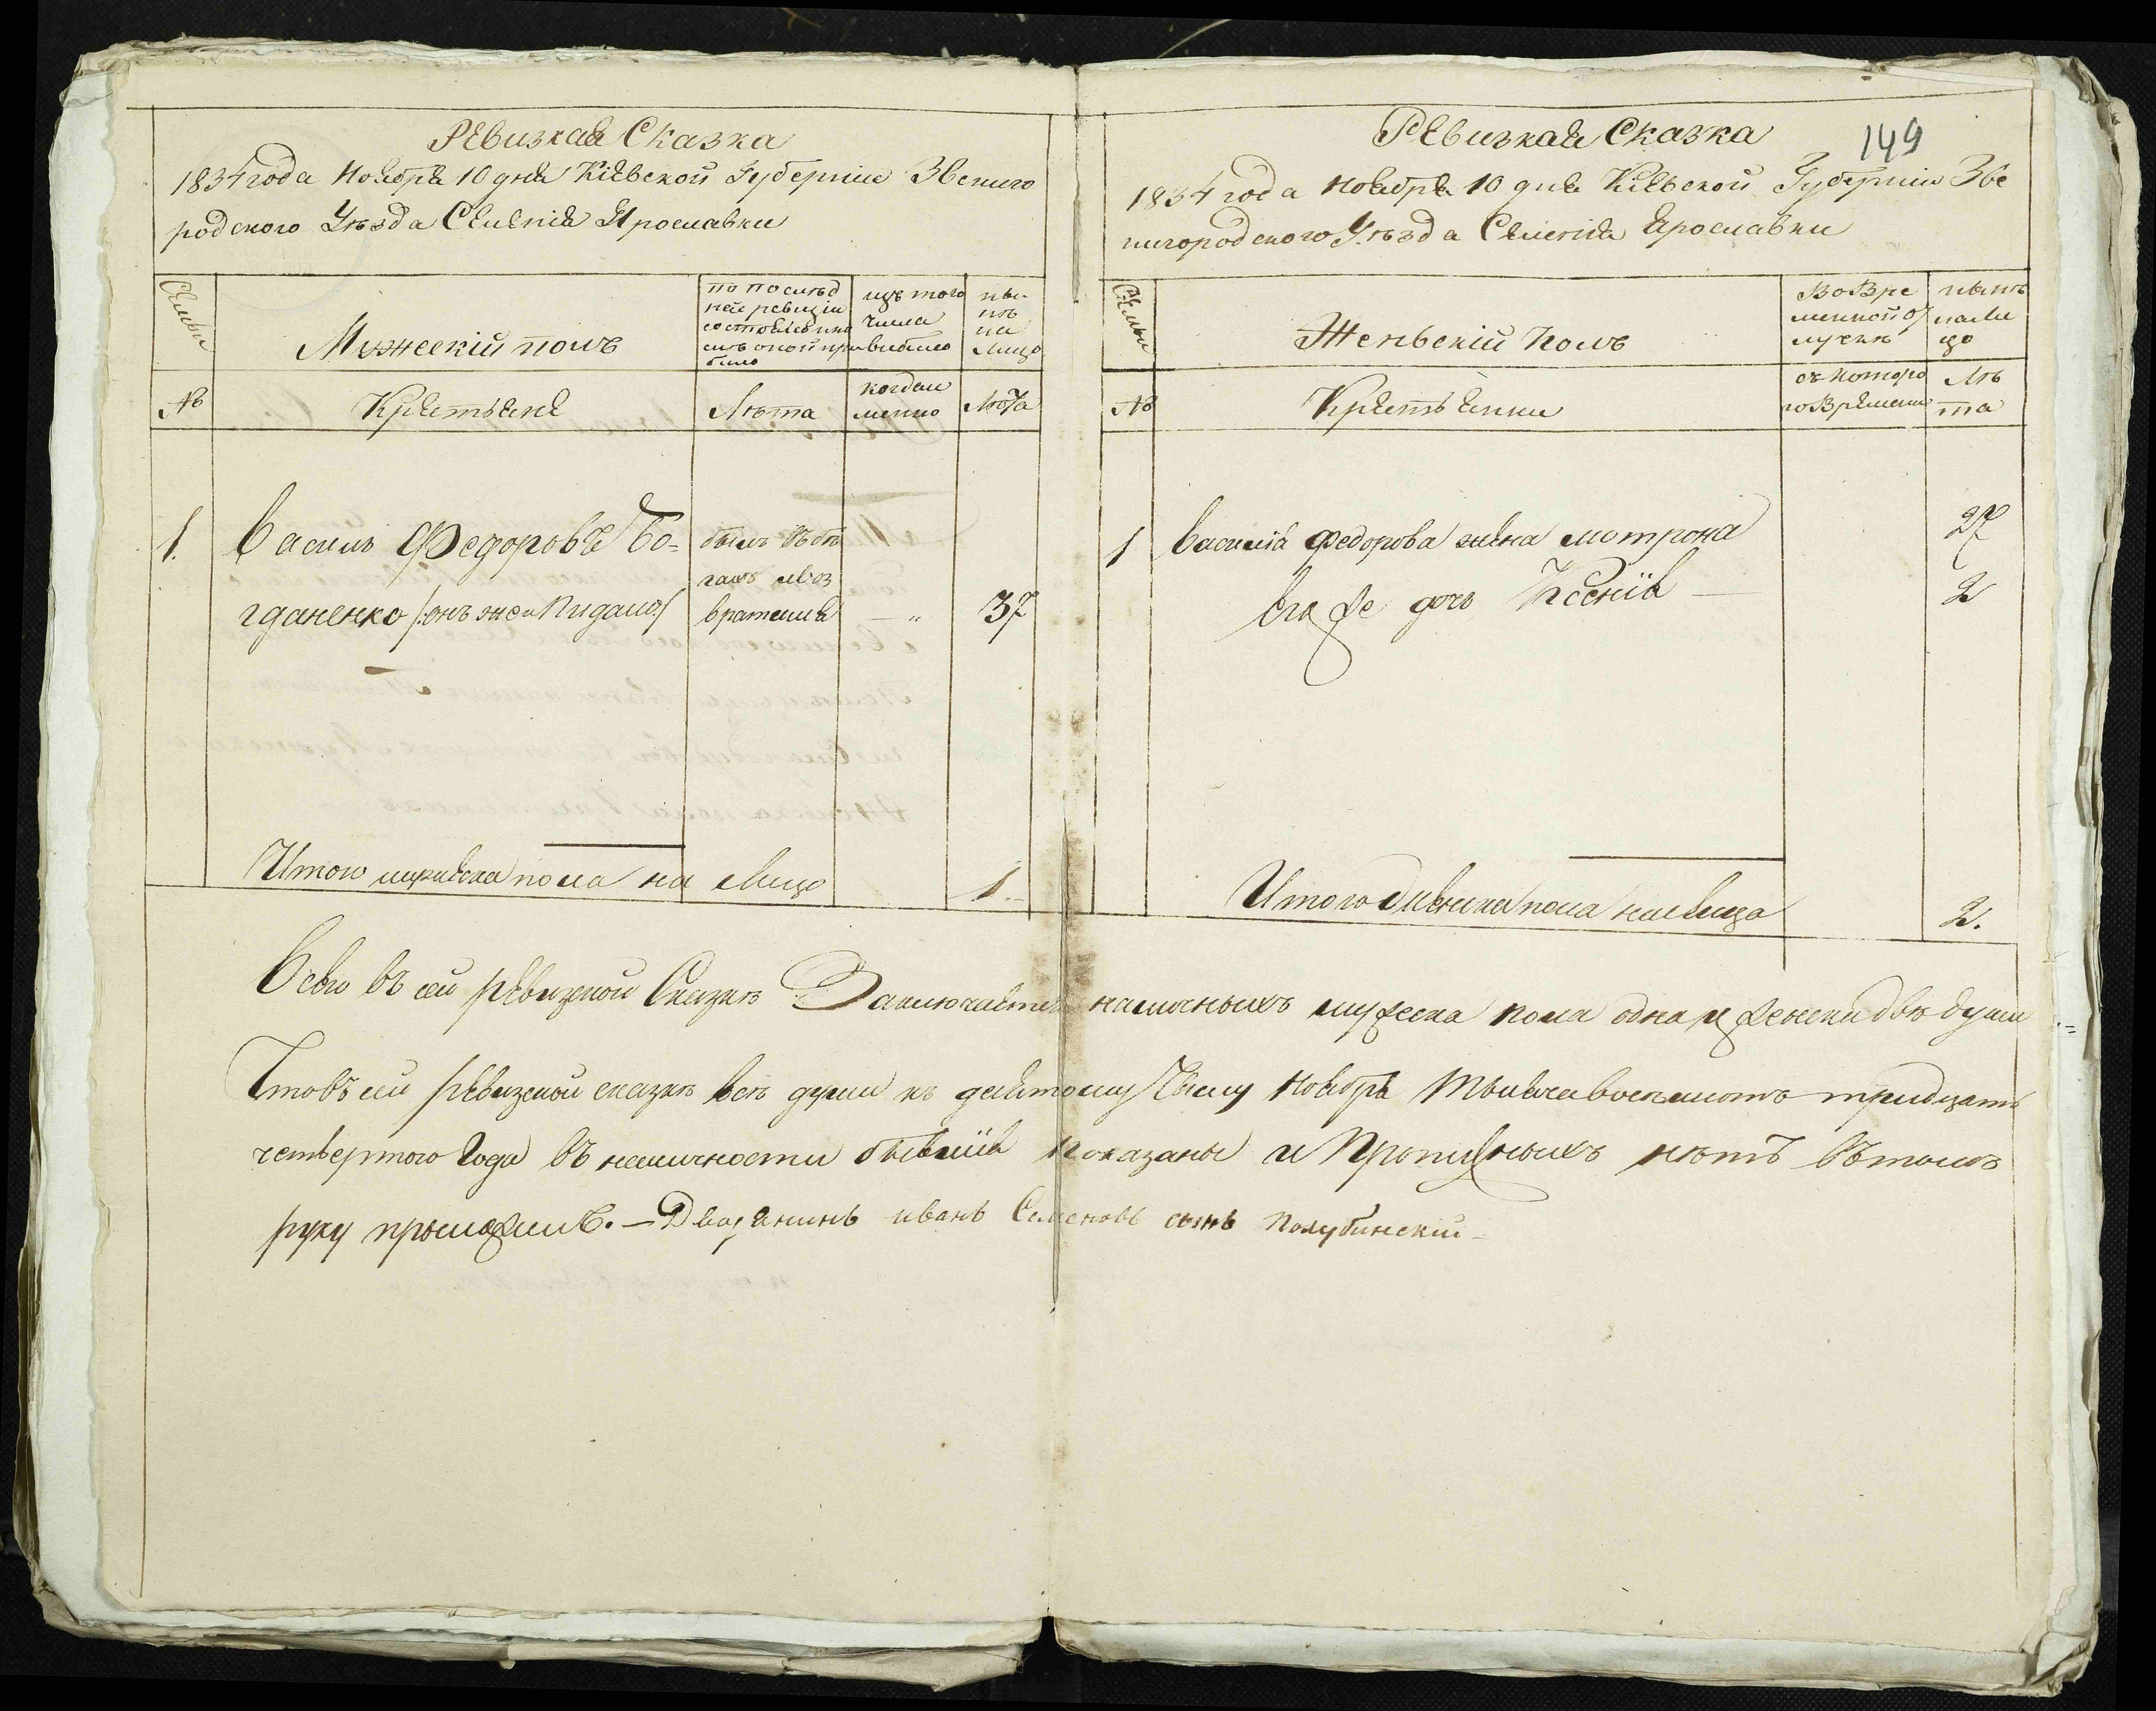 Ревизкая Сказка
1834 года Ноября 10 дня Кіевской Губерніи Звениго
родского Уѣзда Селенія Ярославки
Семьи
Мужескій полъ
по послѣд
ней ревизіи
состояло и по
слѣ оной при
было
изъ того
числа
выбыло
ны-
нѣ
на
лицо
№
Крестьяне
Лѣта
когда и
менно
Лѣта
1.
Василь Федоровъ Бо=
гданенко /:онъ же и Кидало:/
былъ въ бѣ
гахъ и воз
вратился
— „
37
Итого мужеска пола на лицо
1.
Ревизкая Сказка
149
1834 года Ноября 10 дня Кіевской Губерніи Зве
нигородского Уѣзда Селенія Ярославки
Семьи
Женьскій Полъ
Во Вре
менной от
лучкѣ
нынѣ
на ли
цо
№
Крестьянки
съ которо
го Времени
Лѣ
та
1
Василія Федорова жена Мотрона
27
его же дочь Ксенія —
2
Итого женска пола на лицо
2.
Всего въ сей ревизской Сказкѣ Заключается наличныхъ мужеска пола одна и женска двѣ души
Что въ сей ревизской сказкѣ всѣ души къ десятому Числу Ноября Тысяча восемьсотъ тридцать
четвертого Года въ наличности бывшія показаны и Прописныхъ нѣтъ въ томъ
руку приложилъ. — Дворянинъ иванъ Семеновъ сынъ Полубинскій —